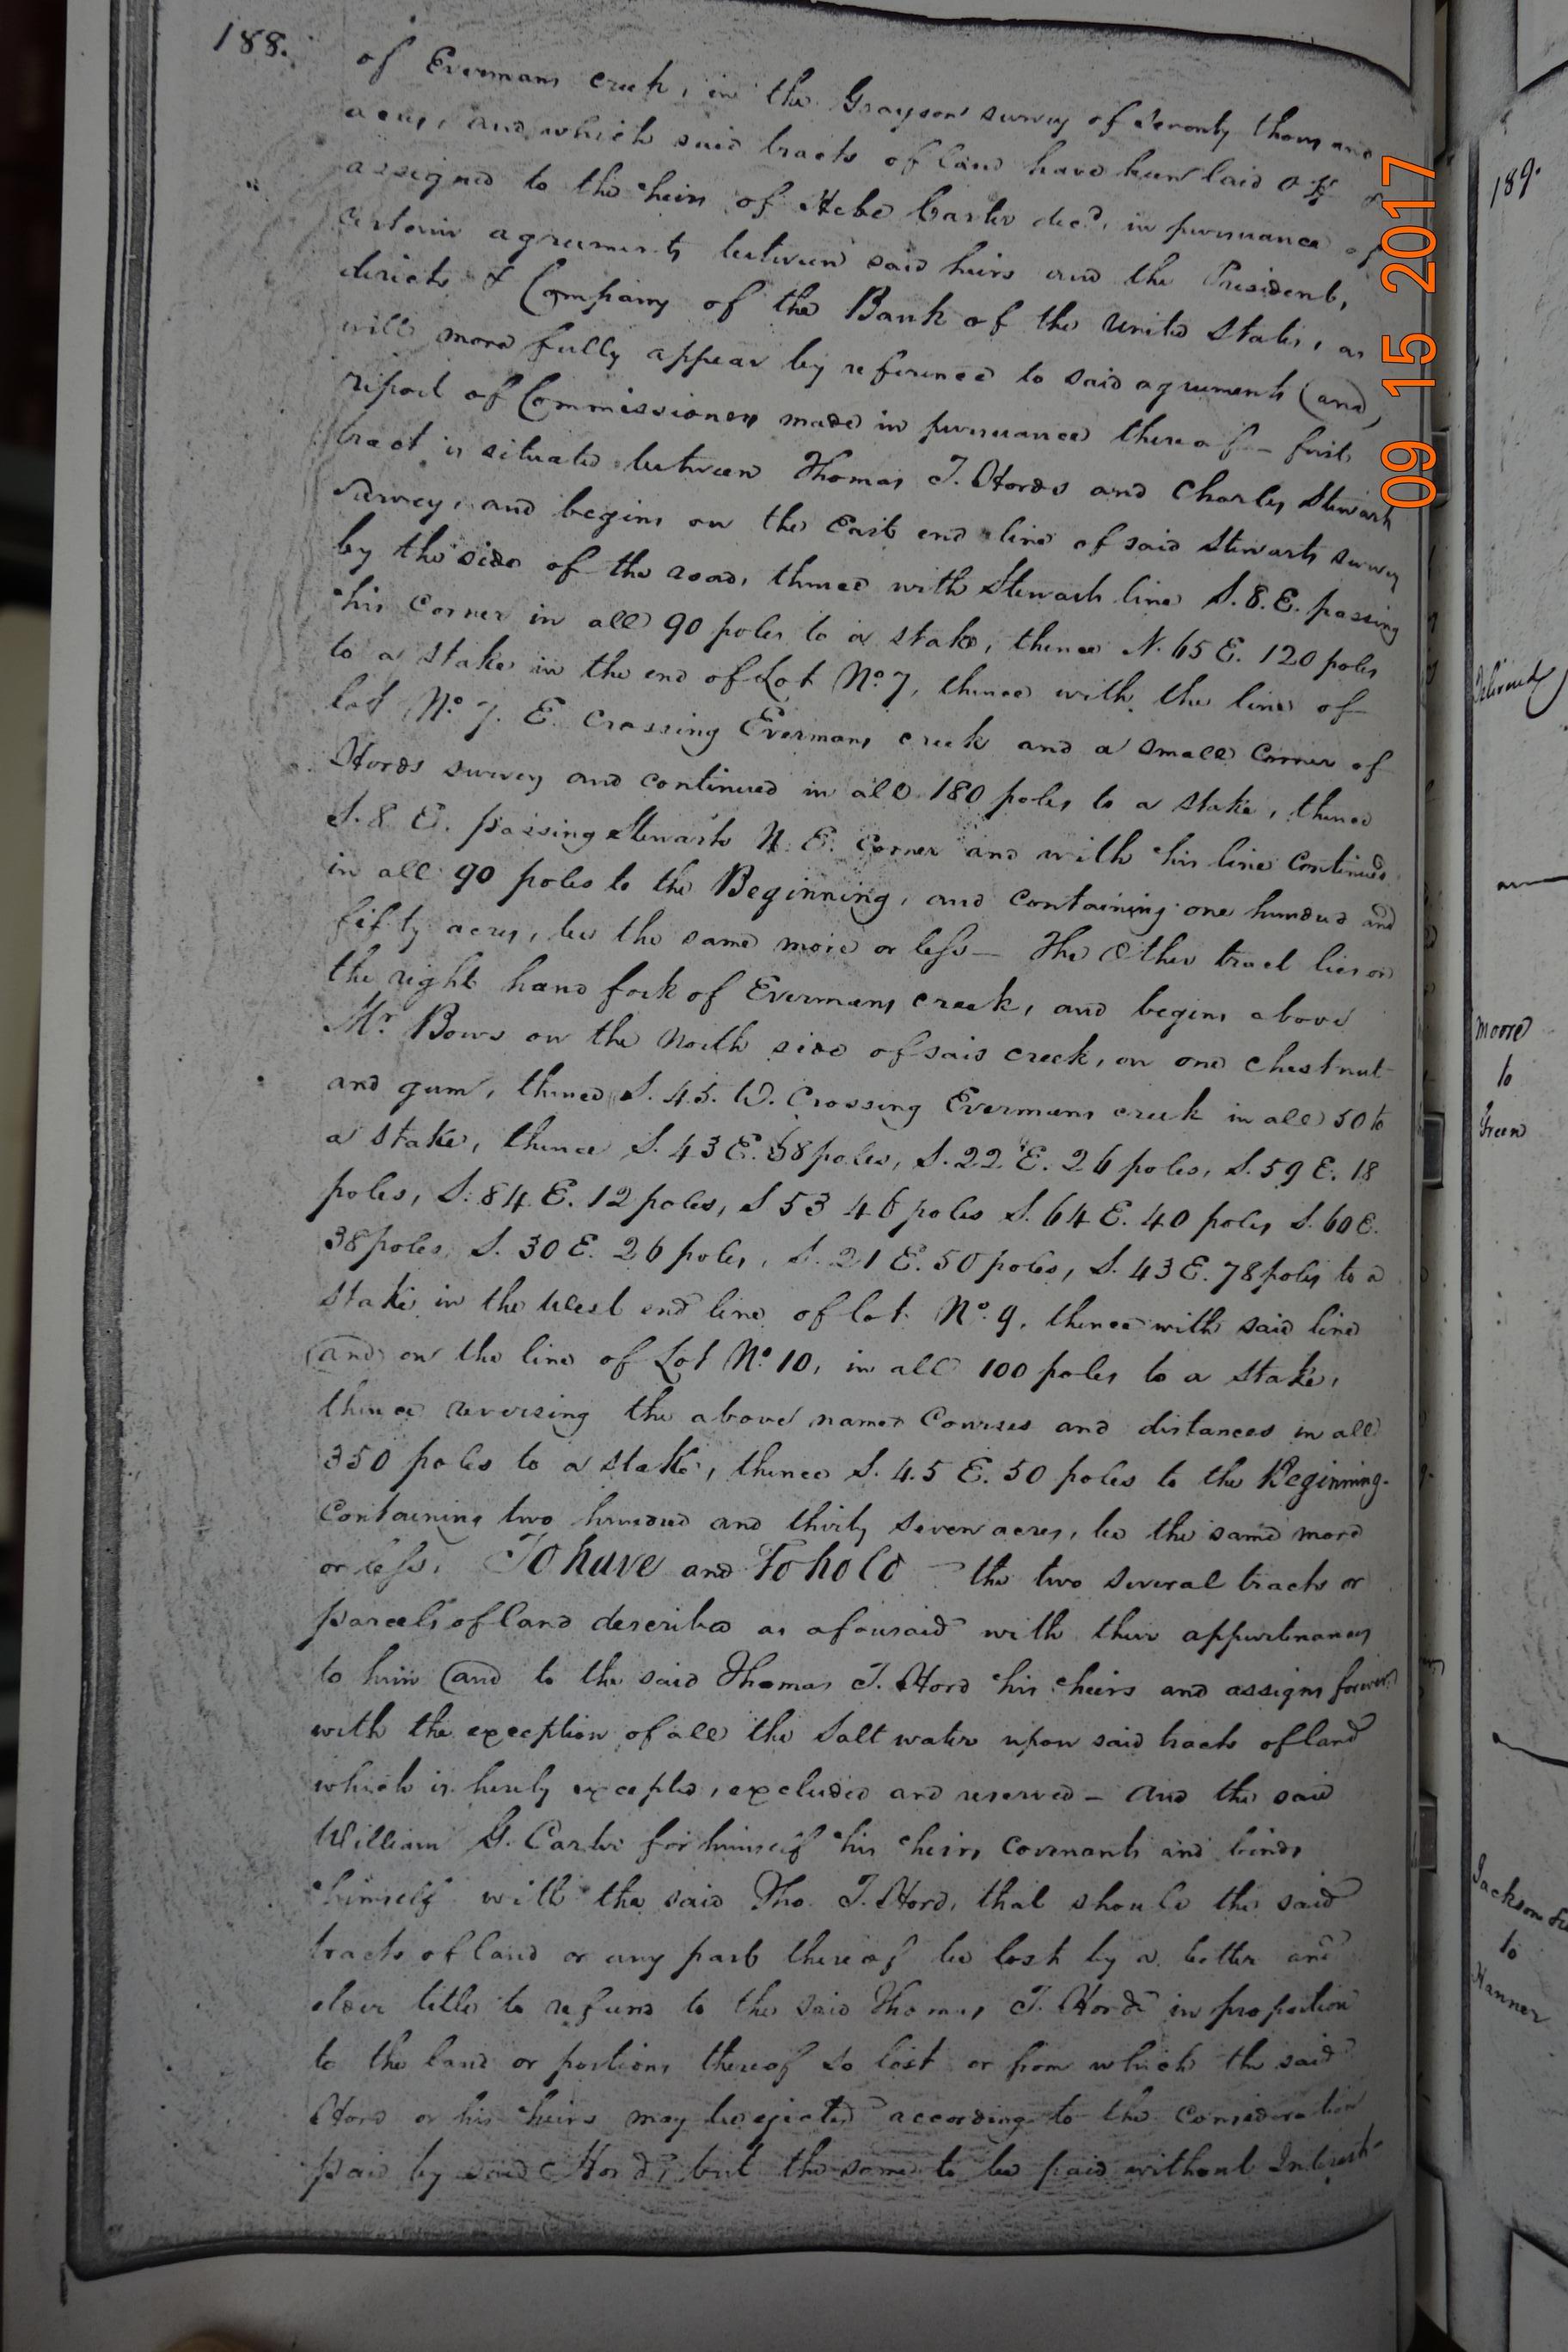 188.
of Evermans creek, in the Graysons survey of Seventy thousand
acres, and which said tracts of land have been laid off &
assigned to the heirs of Hebe Carter decd, in pursuance of
certain agreements between said heirs and the President,
directs & Company of the Bank of the United States, as
will more fully appear by reference to said agreements (and)
report of Commissioners made in pursuance thereof – first
tract is situated between Thomas T. Hords and Charles Stewart
survey, and begins on the East end line of said Stewarts survey
by the side of the road, thence with Stewarts line S. 8. E. passing
his corner in all 90 poles to a stake, thence N. 65 E. 120 poles
to a stake in the end of Lot No. 7, thence with the line of
lot No. 7. E. Crossing Evermans creek and a small corner of
Hords survey and continued in all 180 poles to a stake, thence
S. 8 E. passing Stewarts N. E. Corner and with his line continued
in all 90 poles to the Beginning, and containing one hundred and
fifty acres, be the same more or less – The Other tract lies on
the right hand fork of Evermans creek, and begins above
Mr. Bows on the North side of said creek, on one chestnut
and gum, thence S. 45. W. Crossing Evermans creek in all 50 to
a stake, thence S. 43 E. 58 poles, S. 22 E. 26 poles, S. 59 E. 18
poles, S. 84. E. 12 poles, S 53 46 poles S. 64 E. 40 poles S. 60 E.
38 poles, S. 30 E. 26 poles, S. 21 E. 50 poles, S. 43 E. 78 poles to a
stake in the West end line of lot No. 9, thence with said line
(and) on the line of Lot No. 10, in all 100 poles to a stake,
thence reversing the above named Courses and distances in all
350 poles to a stake, thence S. 45 E. 50 poles to the Beginning.
Containing two hundred and thirty seven acres, be the same more
or less. To have and To hold – the two several tracts or
parcels of land described as aforesaid with their appurtenances
to him (and to the said Thomas T. Hord his heirs and assigns forever
with the exception of all the Salt water upon said tracts of land
which is hereby excepted, excluded and reserved – And the said
William G. Carter for himself his heirs covenants and binds
himself with the said Tho. T. Hord, that should the said
tracts of land or any part thereof be lost by a better and
older title to refund to the said Thomas T. Hord in proportion
to the land or portions thereof so lost or from which the said
Hord or his heirs may be ejected according to the consideration
paid by said Hord, but the same to be paid without Interest
09 15 2017
189.
Delivered
Moore
to
Green
Jackson
to
Hanner